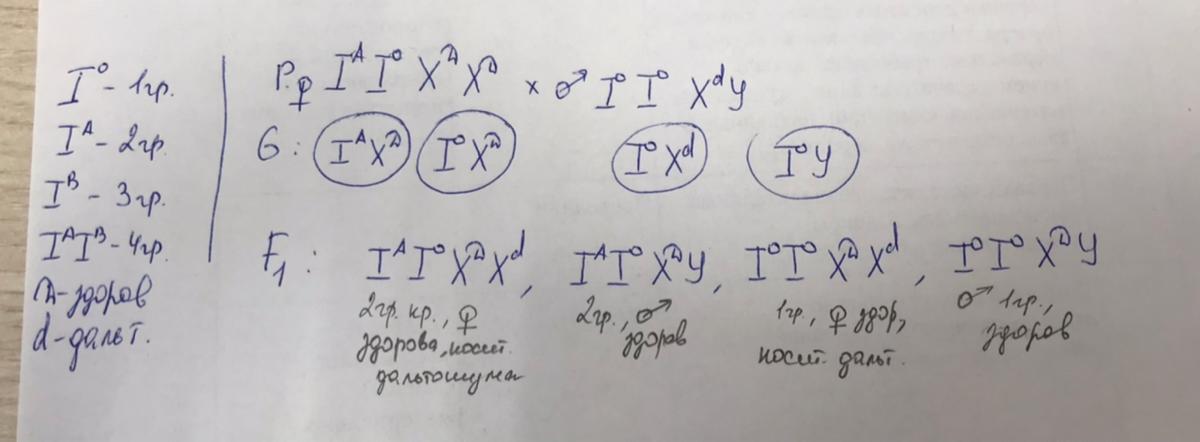 I⁰ - 1гр.
Iᴬ - 2гр.
Iᴮ - 3гр.
IᴬIᴮ - 4гр.
D - здоров
d - дальт.
P: ♀ IᴬI⁰ XᴰXᴰ × ♂ I⁰I⁰ XᵈY
G: IᴬXᴰ I⁰Xᴰ I⁰Xᵈ I⁰Y
F₁: IᴬI⁰XᴰXᵈ, IᴬI⁰XᴰY, I⁰I⁰XᴰXᵈ, I⁰I⁰XᴰY
2гр. кр., ♀
здорова, носит.
дальтонизма
2гр., ♂
здоров
1гр., ♀ здор,
носит. дальт.
♂ 1гр.,
здоров